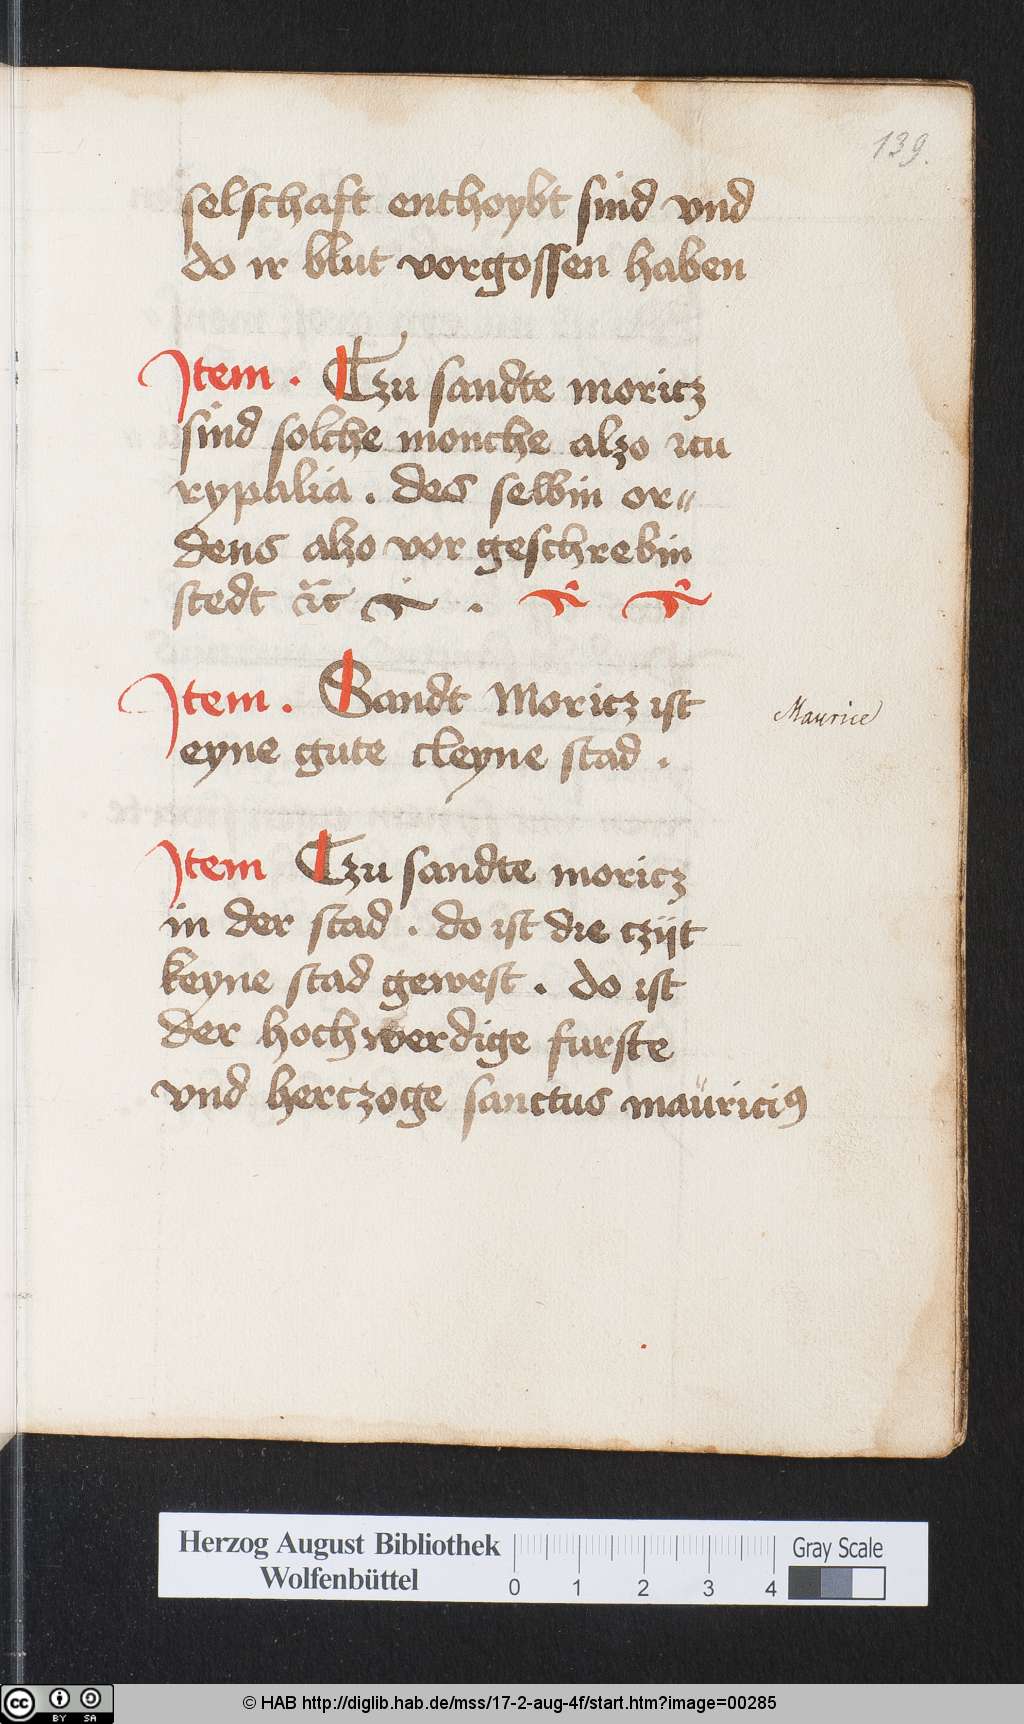 139.
selschaft enthoybt sind vnd
do ir blut vorgossen haben
Item . Tzu sandte moricz
sind solche monche alzo zcu
rypalia . des selbin or〃
dens alzo vor geschrebin
stedt ꝛc .
Item . Sandt Moricz ist
Maurice
eyne gute cleyne stad .
Item Tzu sandte moricz
in der stad . do ist die czijt
keyne stad gewest . do ist
der hochwerdige furste
vnd herczoge sanctus mauriciꝰ
Herzog August Bibliothek
Wolfenbüttel
0 1 2 3 4
Gray Scale
cc BY SA
© HAB http://diglib.hab.de/mss/17-2-aug-4f/start.htm?image=00285